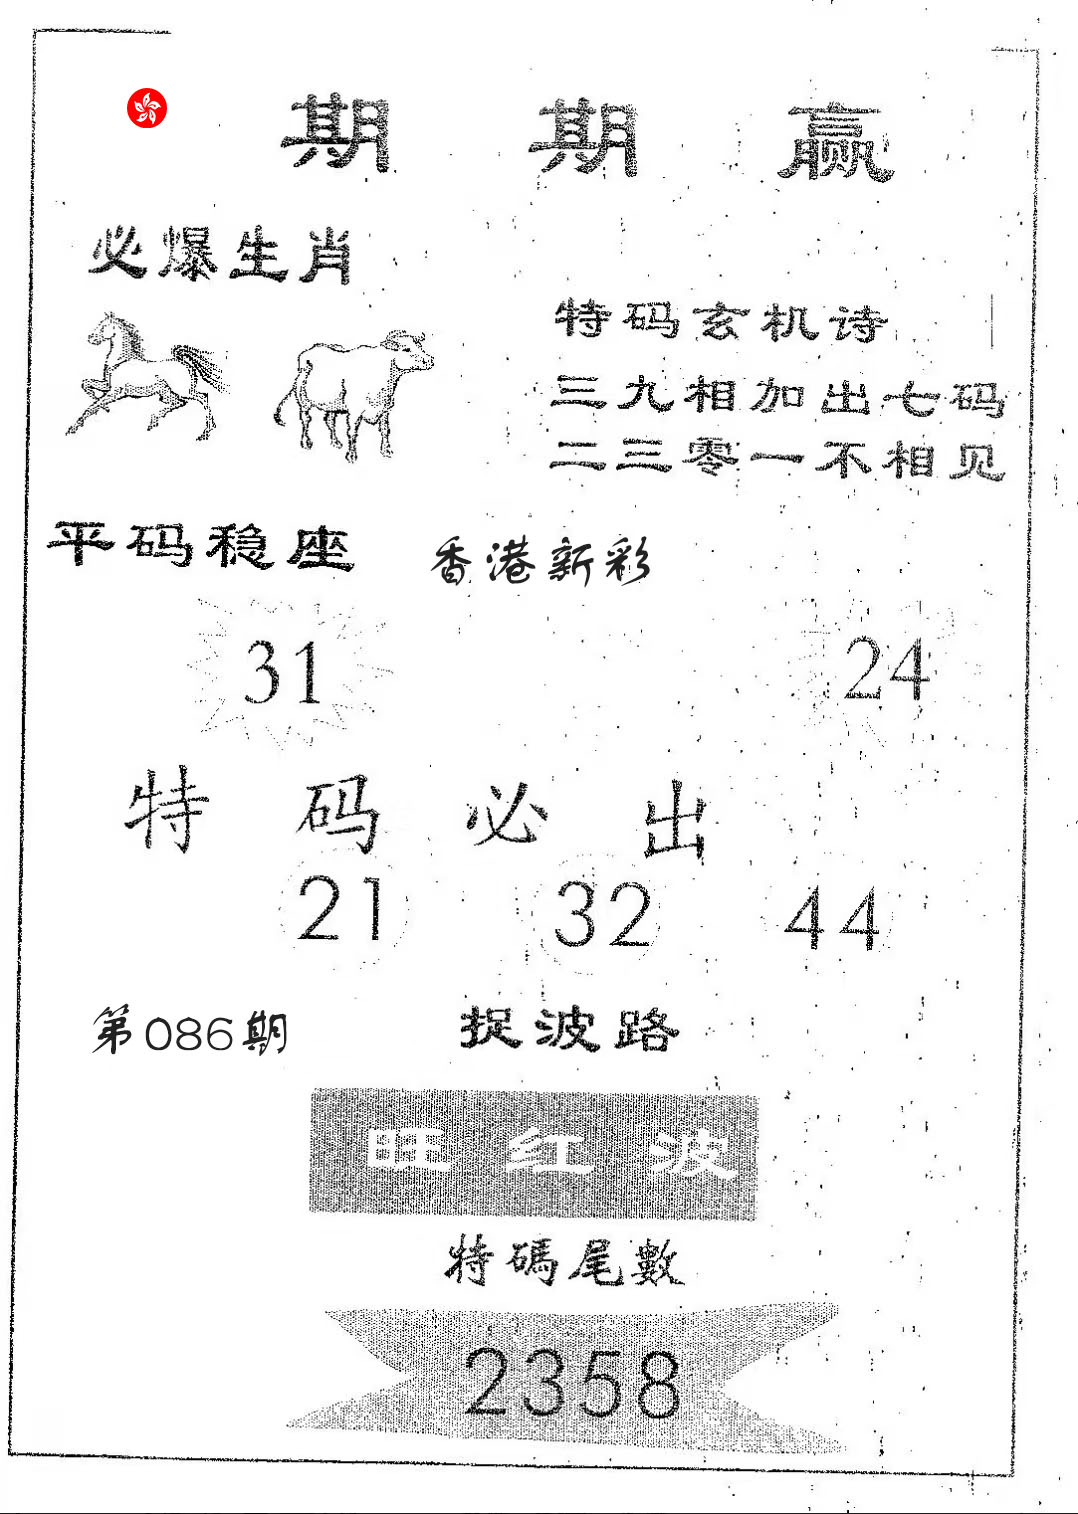 期期赢
必爆生肖
特码玄机诗
三九相加出七码
二三零一不相见
平码稳座
香港新彩
31
24
特码必出
21 32 44
第086期
捉波路
旺红波
特碼尾數
2358